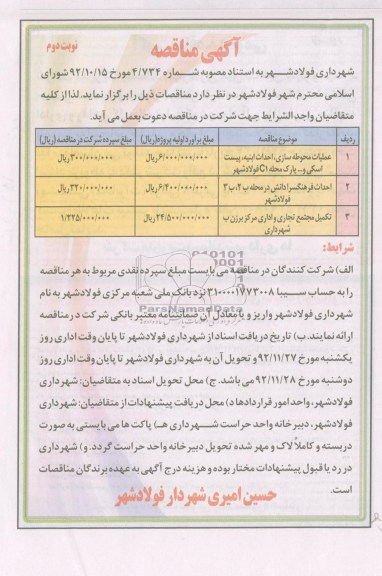 نوبت دوم
آگهی مناقصه
شهرداری فولادشهر به استناد مصوبه شماره ۴/۷۳۴ مورخ ۹۲/۱۰/۱۵ شورای
اسلامی محترم شهر فولادشهر در نظر دارد مناقصات ذیل را برگزار نماید. لذا از کلیه
متقاضیان واجد الشرایط جهت شرکت در مناقصه دعوت بعمل می آید.
ردیف موضوع مناقصه مبلغ برآورد اولیه پروژه (ریال) مبلغ سپرده شرکت در مناقصه (ریال)
۱ عملیات محوطه سازی، احداث ابنیه، پیست ۶/۰۰۰/۰۰۰/۰۰۰ ریال ۳۰۰/۰۰۰/۰۰۰ ریال
اسکی و... پارک محله C۱ فولادشهر
۲ احداث فرهنگسرا دانش در محله ب ۲، ب ۳ ۶/۴۰۰/۰۰۰/۰۰۰ ریال ۳۲۰/۰۰۰/۰۰۰ ریال
فولادشهر
۳ تکمیل مجتمع تجاری و اداری مرکز برزن ب ۲۴/۵۰۰/۰۰۰/۰۰۰ ریال ۱/۲۲۵/۰۰۰/۰۰۰
شهرداری
شرایط:
الف) شرکت کنندگان در مناقصه می بایست مبلغ سپرده نقدی مربوط به هر مناقصه
را به حساب سیبا ۳۱۰۰۰۰۱۷۷۳۰۰۸ نزد بانک ملی شعبه مرکزی فولادشهر به نام
ParsNamadData
شهرداری فولادشهر واریز و یا معادل آن ضمانتنامه معتبر بانکی شرکت در مناقصه
ارائه نمایند. ب) تاریخ دریافت اسناد از شهرداری فولادشهر تا پایان وقت اداری روز
یکشنبه مورخ ۹۲/۱۱/۲۷ و تحویل آن به شهرداری فولادشهر تا پایان وقت اداری روز
دوشنبه مورخ ۹۲/۱۱/۲۸ می باشد. ج) محل تحویل اسناد به متقاضیان: شهرداری
فولادشهر، واحد امور قراردادها د) محل دریافت پیشنهادات از متقاضیان: شهرداری
فولادشهر، دبیرخانه واحد حراست شهرداری هـ) پاکت ها می بایستی به صورت
دربسته و کاملاً لاک و مهر شده تحویل دبیرخانه واحد حراست گردد. و) شهرداری
در رد یا قبول پیشنهادات مختار بوده و هزینه درج آگهی به عهده برندگان مناقصات
است.
حسین امیری شهردار فولادشهر